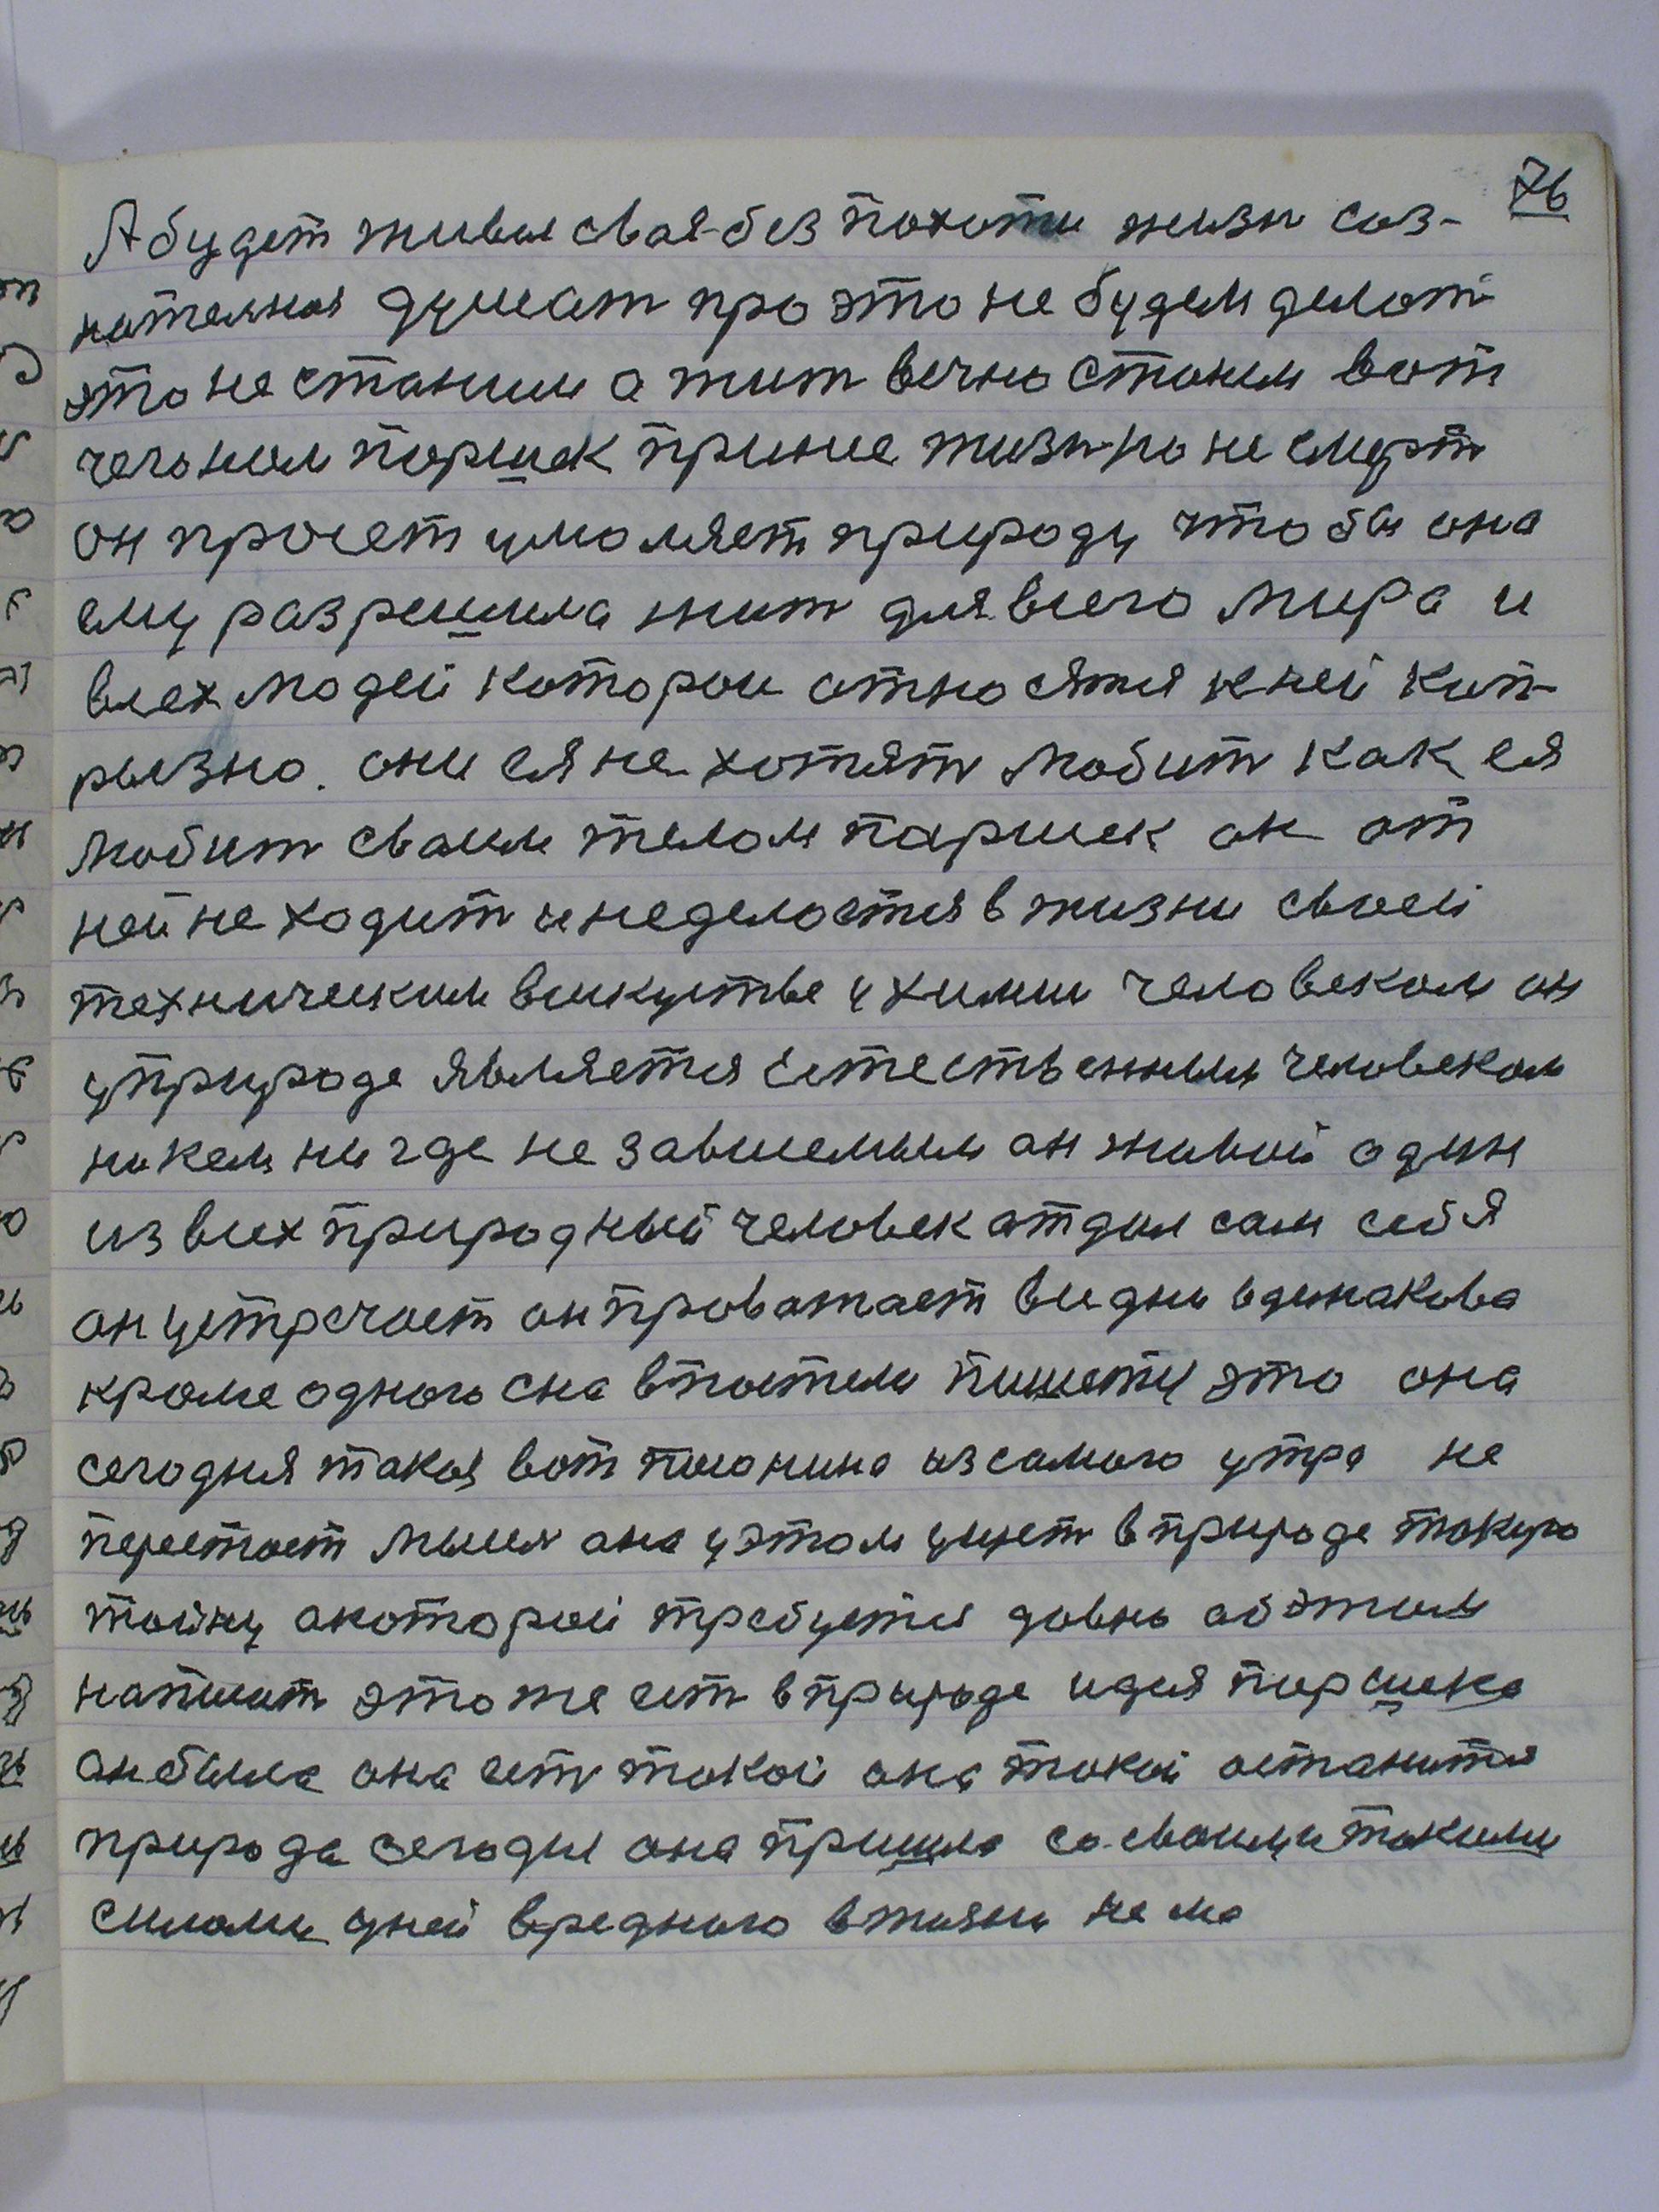 76
А будет живая своя без похоти жизн соз-
нательная думат про это не будем делат
это не станим а жит вечно станем вот
чего нам паршек принис жизн но не смерт
он просет умоляет природу что бы она
ему разрешила жит для всего мира и
всех людей которои относятся к ней кап-
рызно. они ея не хотят любит как ея
любит своим телом паршек он от
ней не ходит и не делается в жизни своей
техническим в искустве и химии человеком он
у природе является естественным человеком
никем ни где не зависемым он живой один
из всех природный человек отдал сам себя
он устречает он проважает все дни одинакова
кроме одного сна в постели пишется это она
сегодня такая вот погонина из самого утра не
перестает мысля она у этом ищет в природе такую
тайну о которой требуется давно об этом
написат это же ест в природе идея паршека
он была она ест такой она такой останится
природа сегодня она пришла со своими такими
силами у ней вредного в жизни не ма